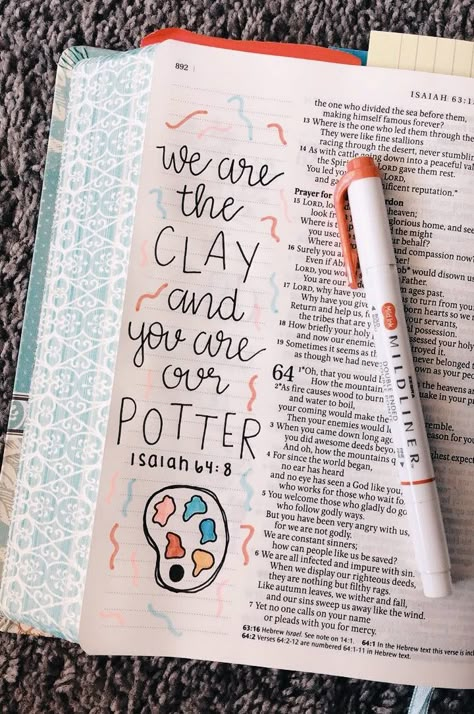 892
ISAIAH 63:1
we are
the
CLAY
and
you are
our
POTTER
Isaiah 64:8
the one who divided the sea before them,
making himself famous forever?
13 Where is the one who led them through the
They were like fine stallions
racing through the desert, never stumblin
14 As with cattle going down into a peaceful val
the Spirit LORD gave them rest.
You led yo LORD,
and ga ificent reputation."
Prayer for rdon
15 LORD, loo heaven;
look fr glorious home, and see
Where is the might
you used behalf?
Where are and compassion now?
16 Surely you a ther!
Even if Abra ob would disown u
LORD, you w ther.
You are our ages past.
17 LORD, why have yo to turn from you
Why have you give born hearts so we n
Return and help us, f your servants,
the tribes that are y possession.
18 How briefly your ho ssessed your holy
and now our enemies royed it.
19 Sometimes it seems as th never belonged t
as though we had neve own as your peo
64 1 "Oh, that you would b the heavens a
How the mountain uake in your p
2 As fire causes wood to burn
and water to boil,
your coming would make the
Then your enemies would l remble.
3 When you came down long ago eason for y
you did awesome deeds beyo highest expect
And oh, how the mountains q
4 For since the world began,
no ear has heard
and no eye has seen a God like you,
who works for those who wait fo
5 You welcome those who gladly do go
who follow godly ways.
But you have been very angry with us,
for we are not godly.
We are constant sinners;
how can people like us be saved?
6 We are all infected and impure with sin.
When we display our righteous deeds,
they are nothing but filthy rags.
Like autumn leaves, we wither and fall,
and our sins sweep us away like the wind.
7 Yet no one calls on your name
or pleads with you for mercy.
63:16 Hebrew Israel. See note on 14:1. 64:1 In the Hebrew text this verse is incl
64:2 Verses 64:2-12 are numbered 64:1-11 in Hebrew text.
MILDLINER
DOUBLE ENDED